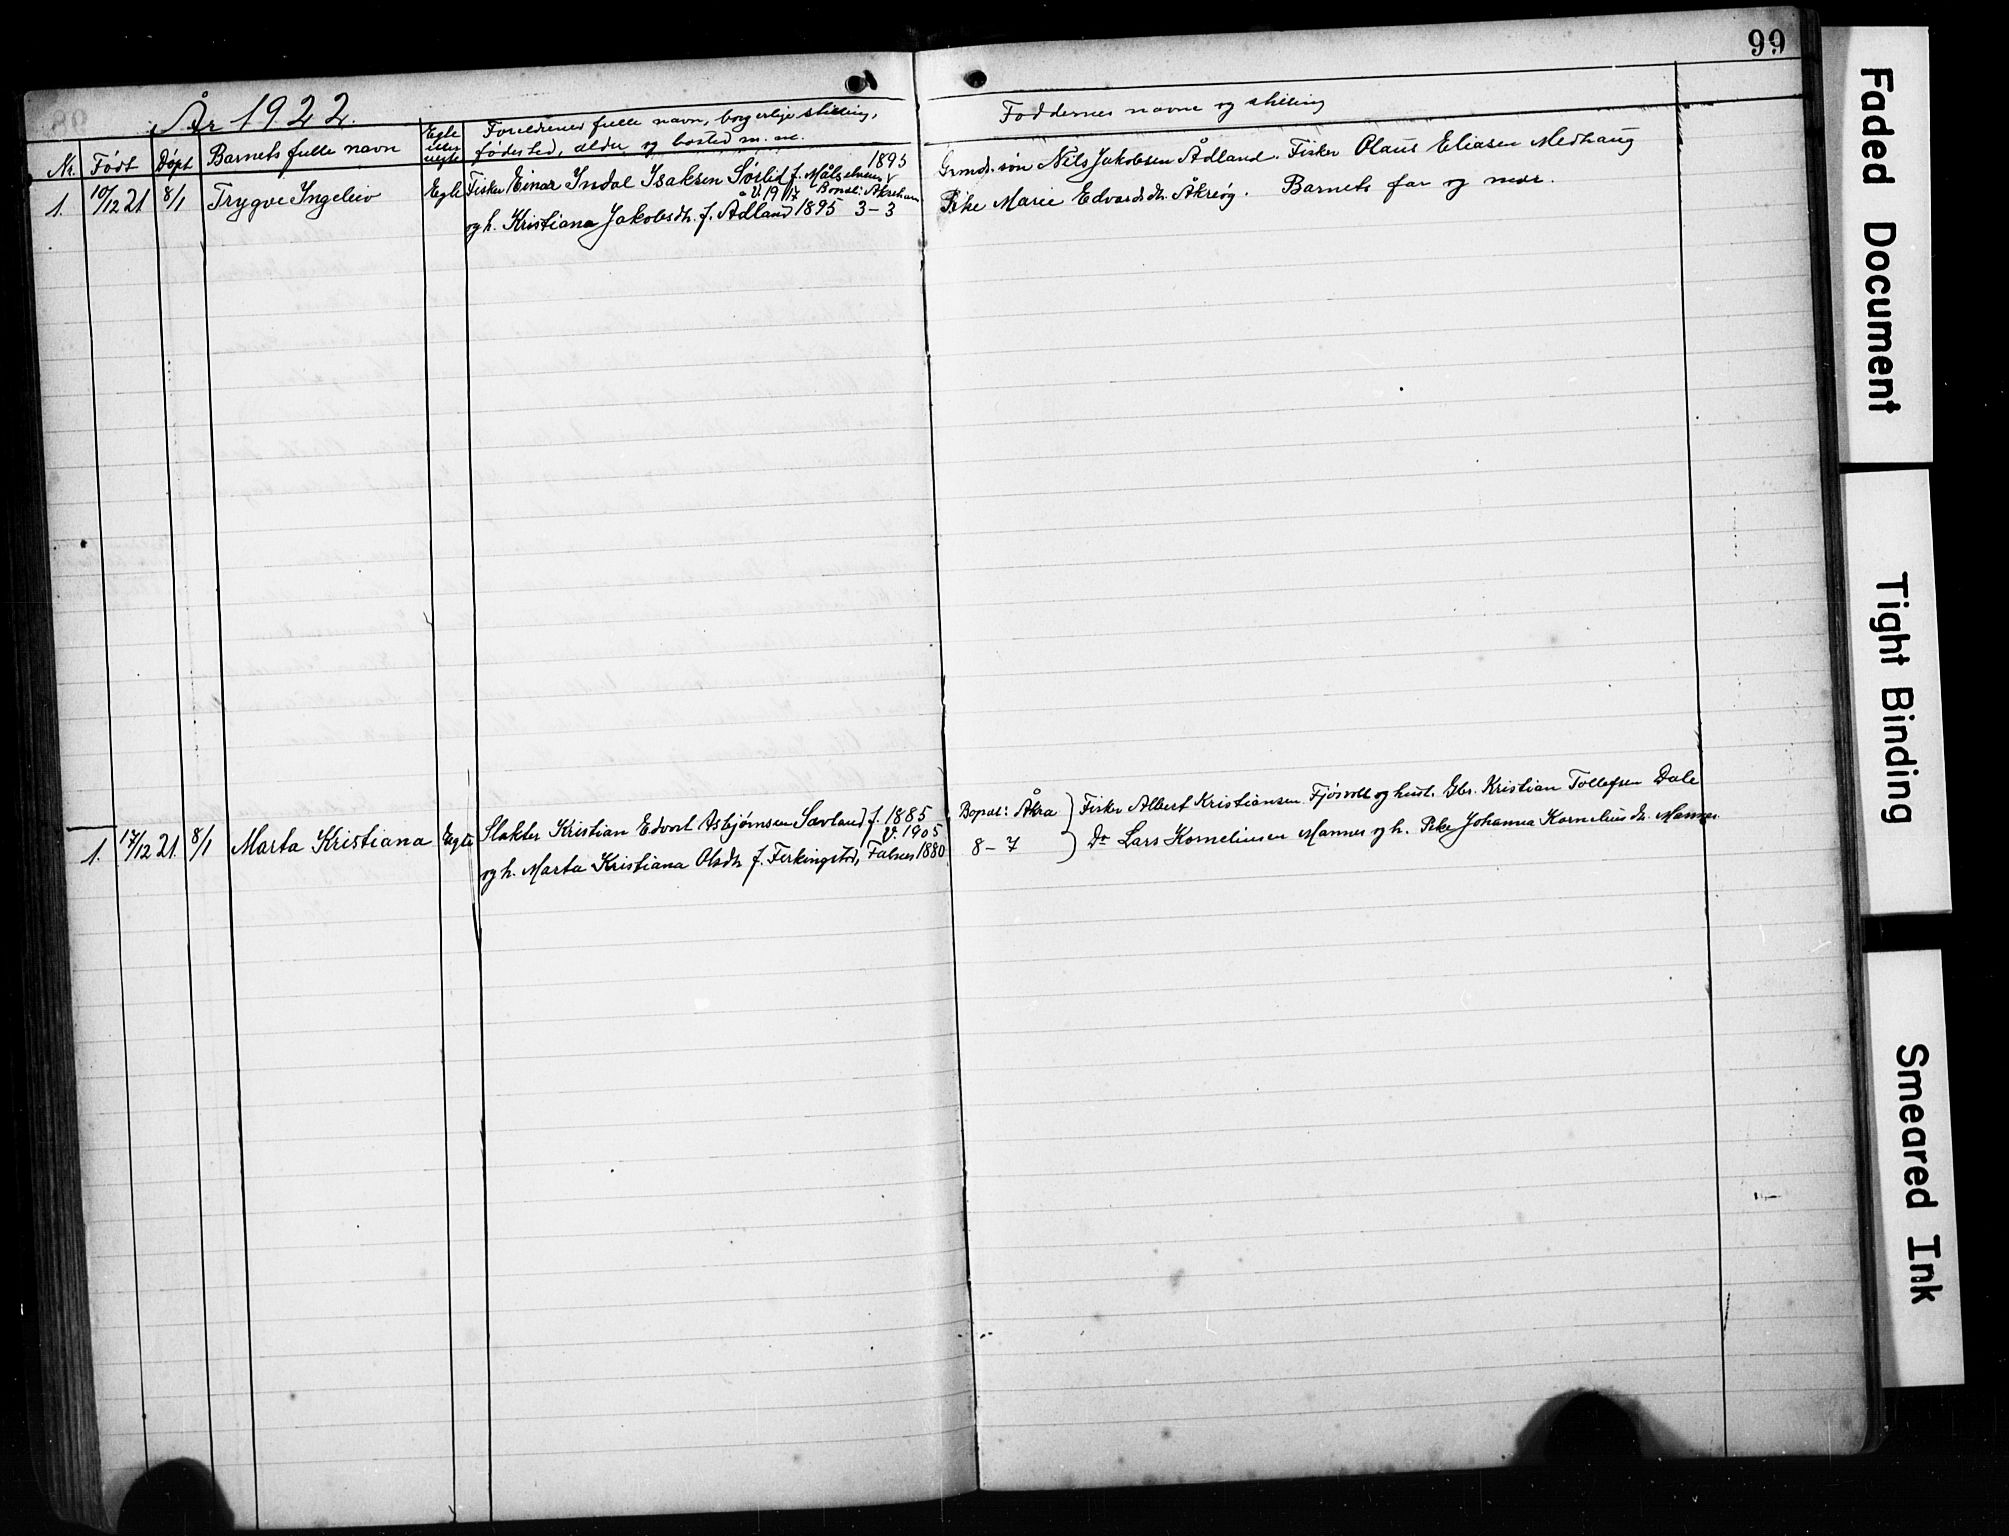 99
År 1922.
Nr. Født Døpt Barnets fulle navn Egte eller uegte Foreldrenes fulle navn, borgerlige stilling, fødested, alder og bosted m. m. Faddernes navne og stilling
1. 10/12 21 8/1 Trygve Ingeleiv Egte Fisker Einar Indal Isaksen Sørlid f. Målselven 1895
V. 19 4/17 Bopæl: Åkrehavn
og h. Kristiana Jakobsdtr. f. Ådland 1895 3-3
Grmds. søn Nils Jakobsen Ådland. Fisker Olaus Eliasen Medhaug
Pike Marie Edvardsdtr. Åkreøy. Barnets far og mor.
1. 17/12 21. 8/1 Marta Kristiana Egte Slakter Kristian Edvart Asbjørnsen Sævland f. 1885
V. 1905
og h. Marta Kristiana Olsdtr f. Ferkingstad, Falnes 1880
Bopæl: Åkra } Fisker Albert Kristiansen Fjøsvoll og hust. Gbr. Kristian Tollefsen Dale
8-7 } Do Lars Korneliusen Mannes og h. Pike Johanna Korneliusdtr. Mannes.
Faded Document
Tight Binding
Smeared Ink